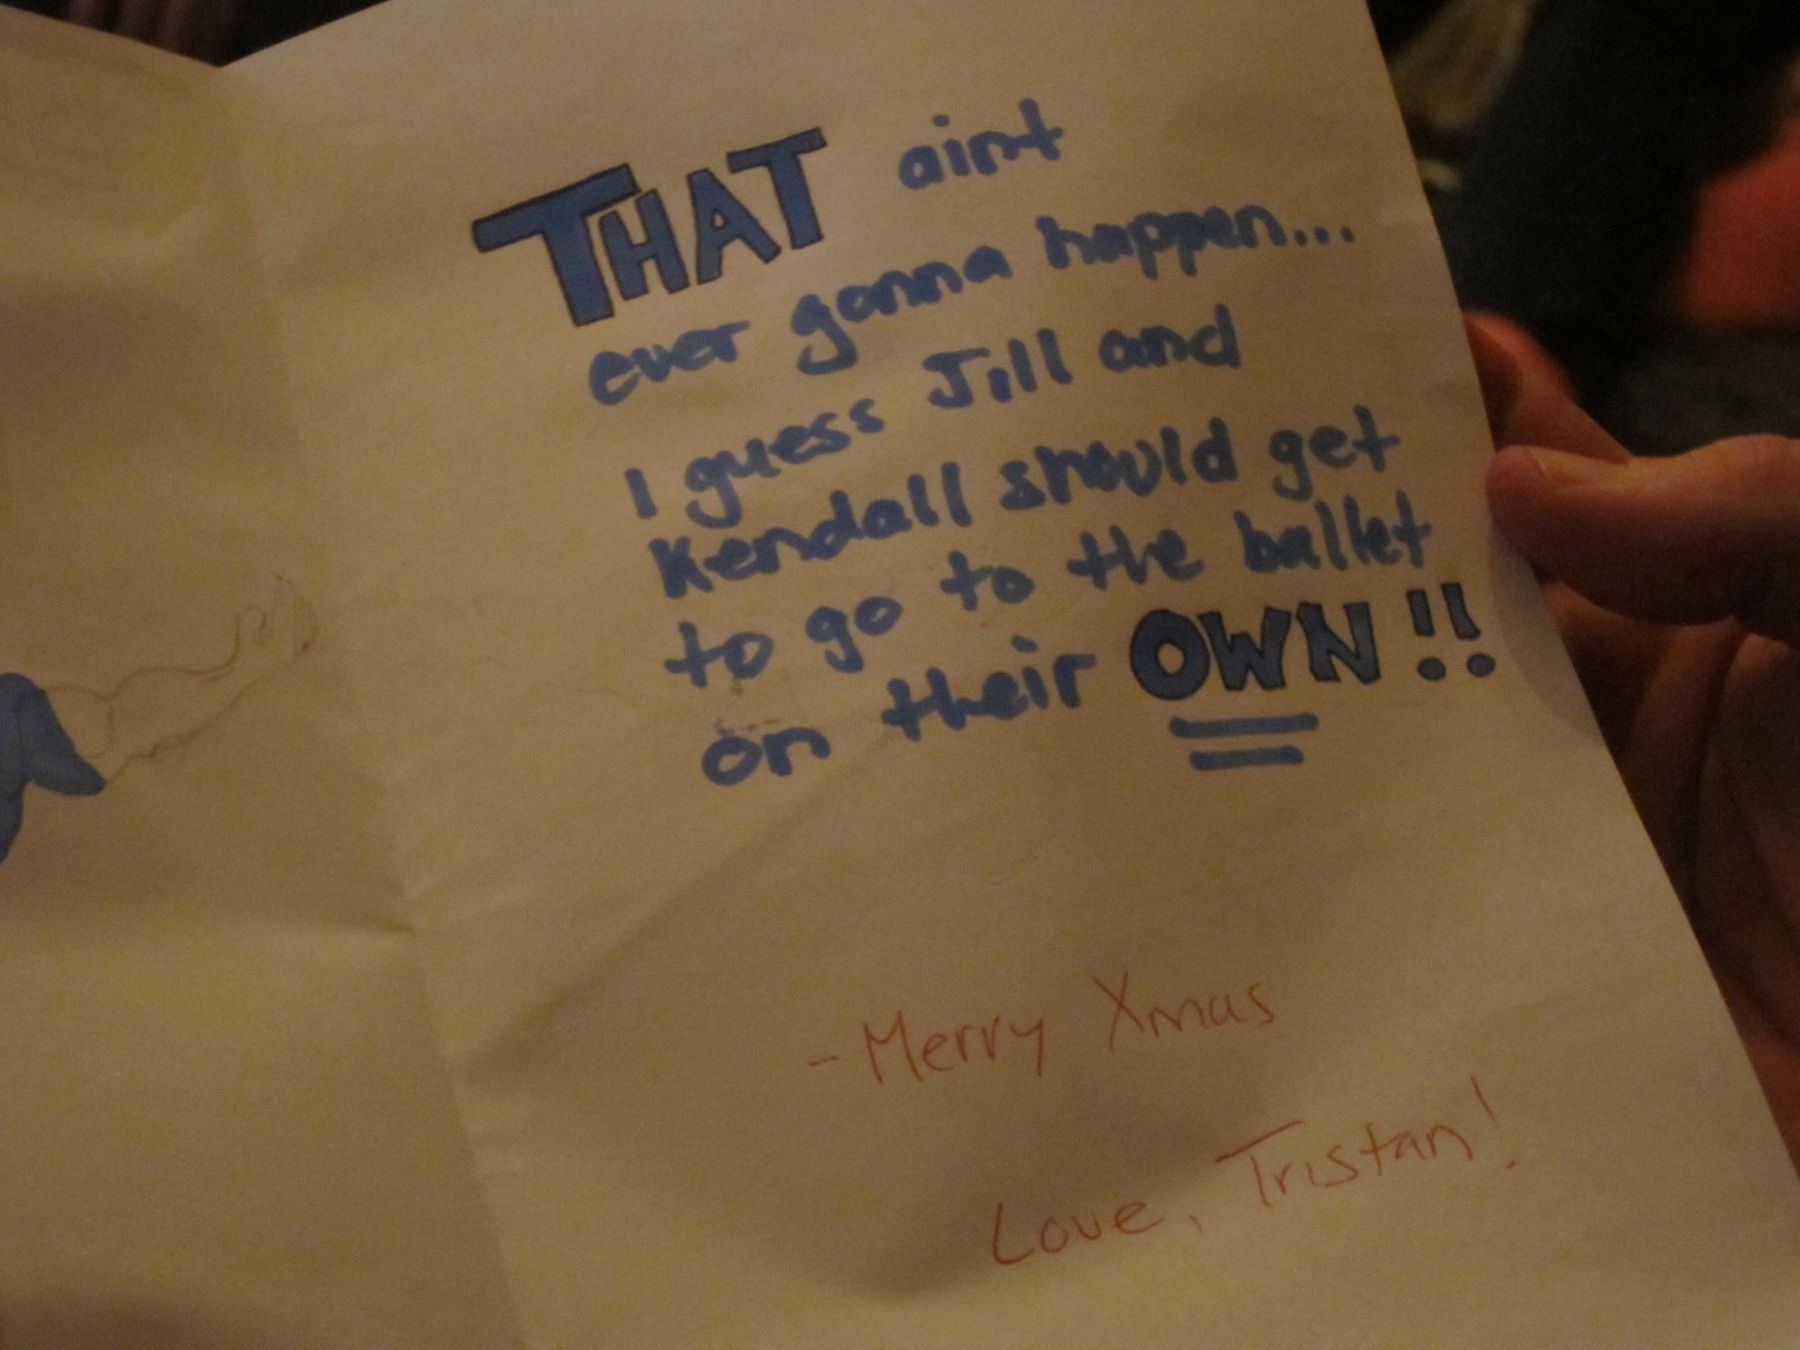 THAT aint
ever gonna happen...
I guess Jill and
Kendall should get
to go to the ballet
on their OWN!!
-Merry Xmas
Love, Tristan!